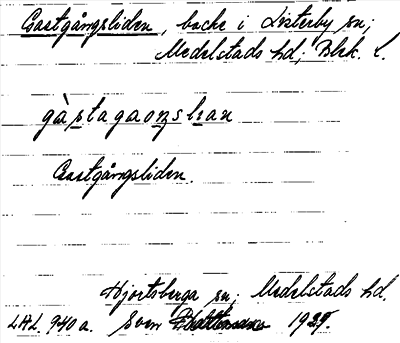 Gastgångsliden, backe i Listerby sn;
Medelstads hd; Blek. l.
gàstagaoŋslian
Gastgångsliden.
Hjortsberga sn; Medelstads hd.
LAL. 940 a. Sven 1929.